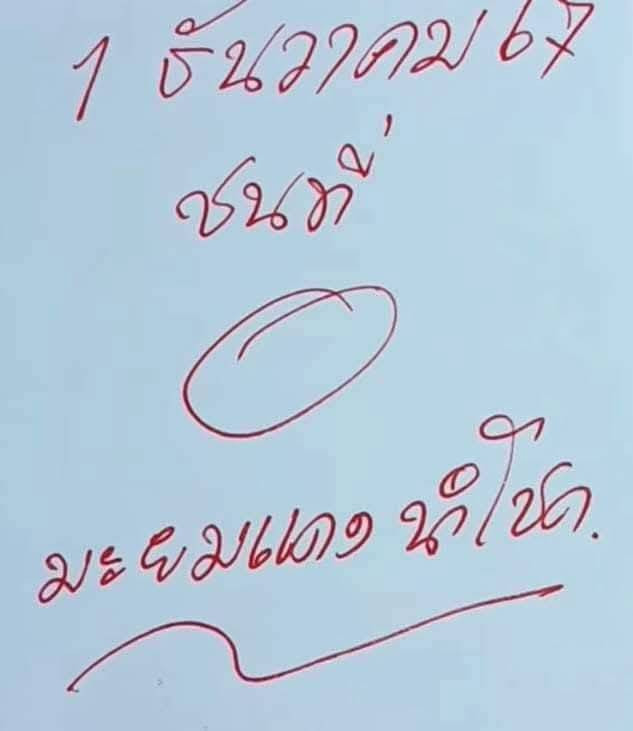 1 ธันวาคม 67
ชนที่
0
มะยมแดง นำโชค.